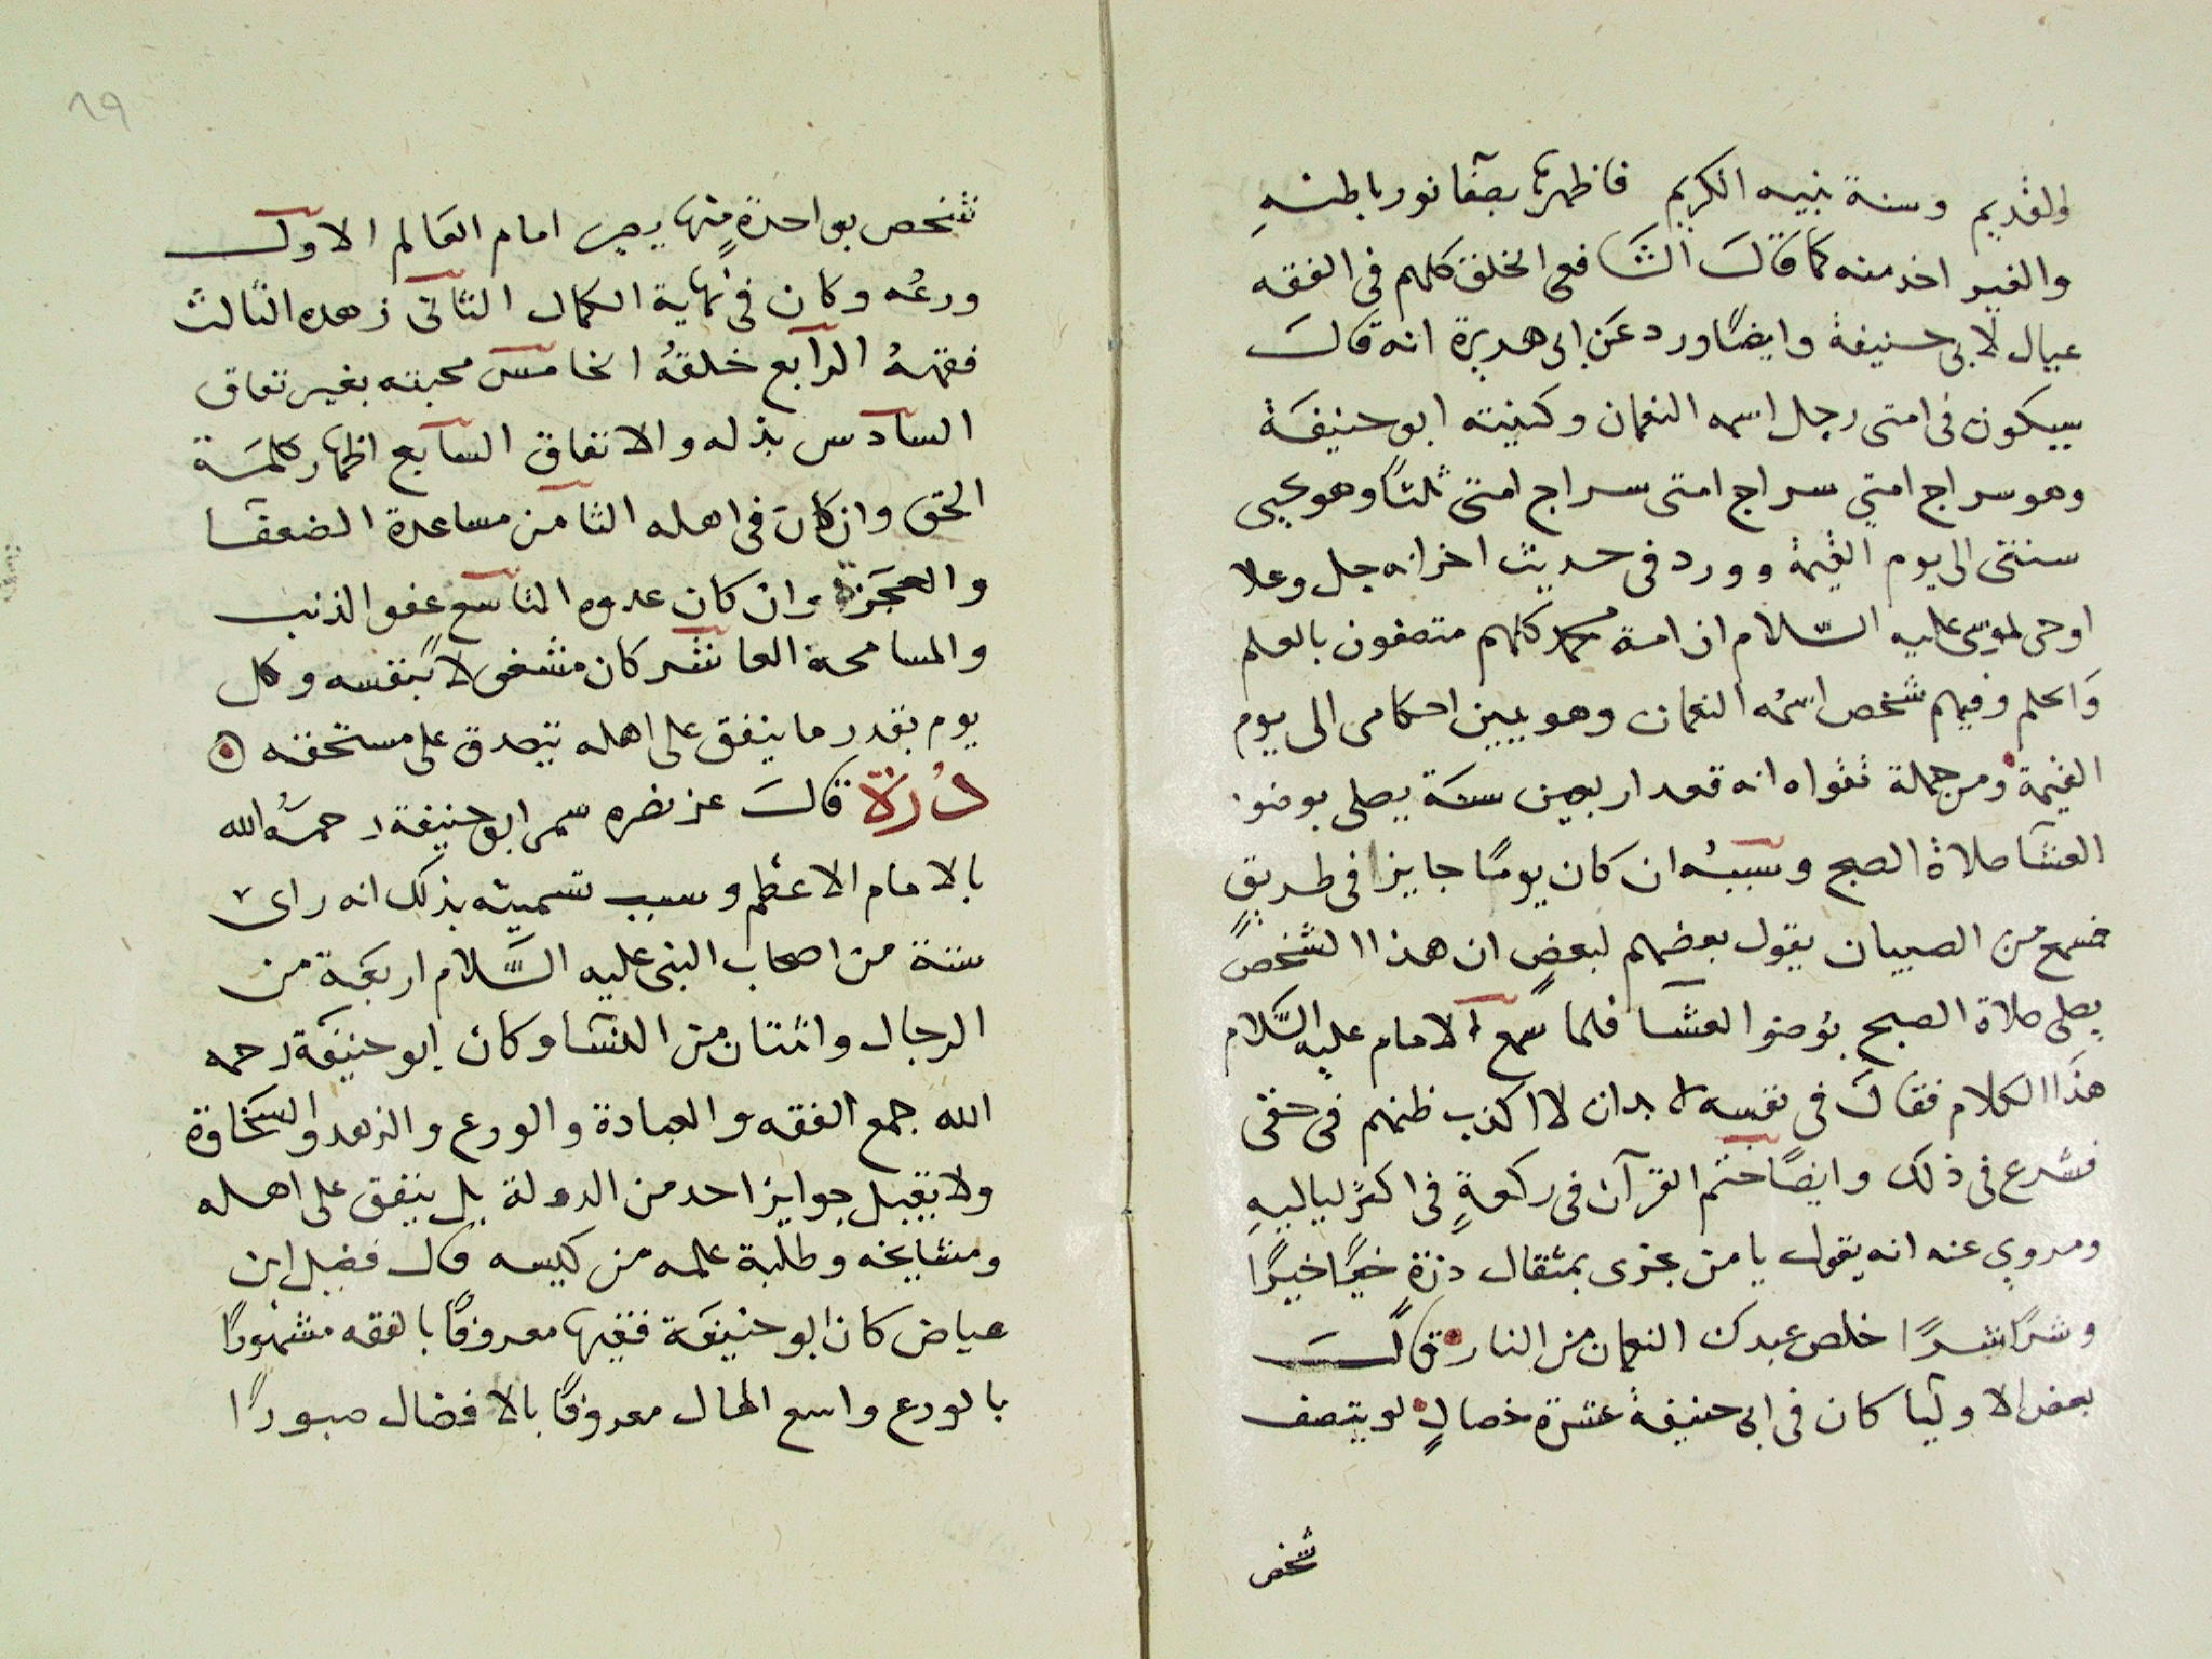 والقديم وسنة نبيه الكريم فاظهرتها بصفا نور باطنهِ
والغير اخذ منه كما قَالَ الشَّافعى الخلق كلهم فى الفقه
عيال لابى حنيفة وايضًا ورد عَن ابى هريرة انه قالَ
سيكون فى امتى رجل اسمه النعمان وكنيته ابو حنيفَة
وهو سراج امتي سراج امتى سراج امتى ثلثًا وهو يحيى
سنتى الى يوم القيمة وورد فى حديث اخر انه جل وعلا
اوحى لموسى عليه السّلام ان امة محمد كلهم متصفون بالعلم
وَالحلم وفيهم شخص اسمُه النعمان وهو يبين احكامى الى يوم
القيمة ومن جملة تقواه انه قعد اربعين سنَة يصلى بوضوء
العشَا صلاة الصبح وسببُه ان كان يومًا جايزا فى طريقٍ
فسمع من الصبيان يقول بعضهم لبعضٍ ان هذا الشخصً
يصلى صلاة الصبح بوُضو العشَا فلما سمع الامام عليه السَّلام
هذَا الكلام فقالَ فى نفسه لا بد ان لا اكذب ظنهم فى حقى
فشرع فى ذلك وايضًا ختم القرآن فى ركعةٍ فى اكثرً لياليهِ
ومروي عنه انه يقول يا من يجزى بمثقال ذرةٍ خيرًا خيرًا
وشرًا شرًا خلص عبدك النعمان من النار قالَ
بعض الاوليَا كان فى ابى حنيفة عشرة خصالٍ لو يتصف
شخص
٨٩
شخص بواحدة منها يصير امام العَالم الاول
ورعُه وكان فى نهاية الكمال الثانى زهده الثالث
فقههُ الرابع خلقهُ الخامس محبته بغير نفاق
السادس بذله والانفاق السابع اظهار كلمَة
الحق وان كان فى اهله الثامن مساعدة الضعفا
والعجَزة وان كان عدوه التاسع عفو الذنب
والمسامحة العاشر كان مشغولا بنفسه وكل
يوم بقدر ما ينفق على اهله يتصدق على مستحقه
دُرَّة قالَ عز نصره سمى ابو حنيفة رحمهُ الله
بالامام الاعظم وسبب تسميته بذلك انه راى
ستة من اصحاب النبى عليه السَّلام اربعَة من
الرجال واثنتان من النسَا وكان ابو حنيفَة رحمه
الله جمع الفقه والعبادة والورع والزهد والسخَاوة
ولا يقبل جوايز احد من الدولة بل ينفق على اهله
ومشايخه وطلبة علمه من كيسه قال فضيل ابن
عياض كان ابو حنيفَة فقيها معروفًا بالفقه مشهورًا
بالورع واسع المال معروفًا بالافضال صبورًا